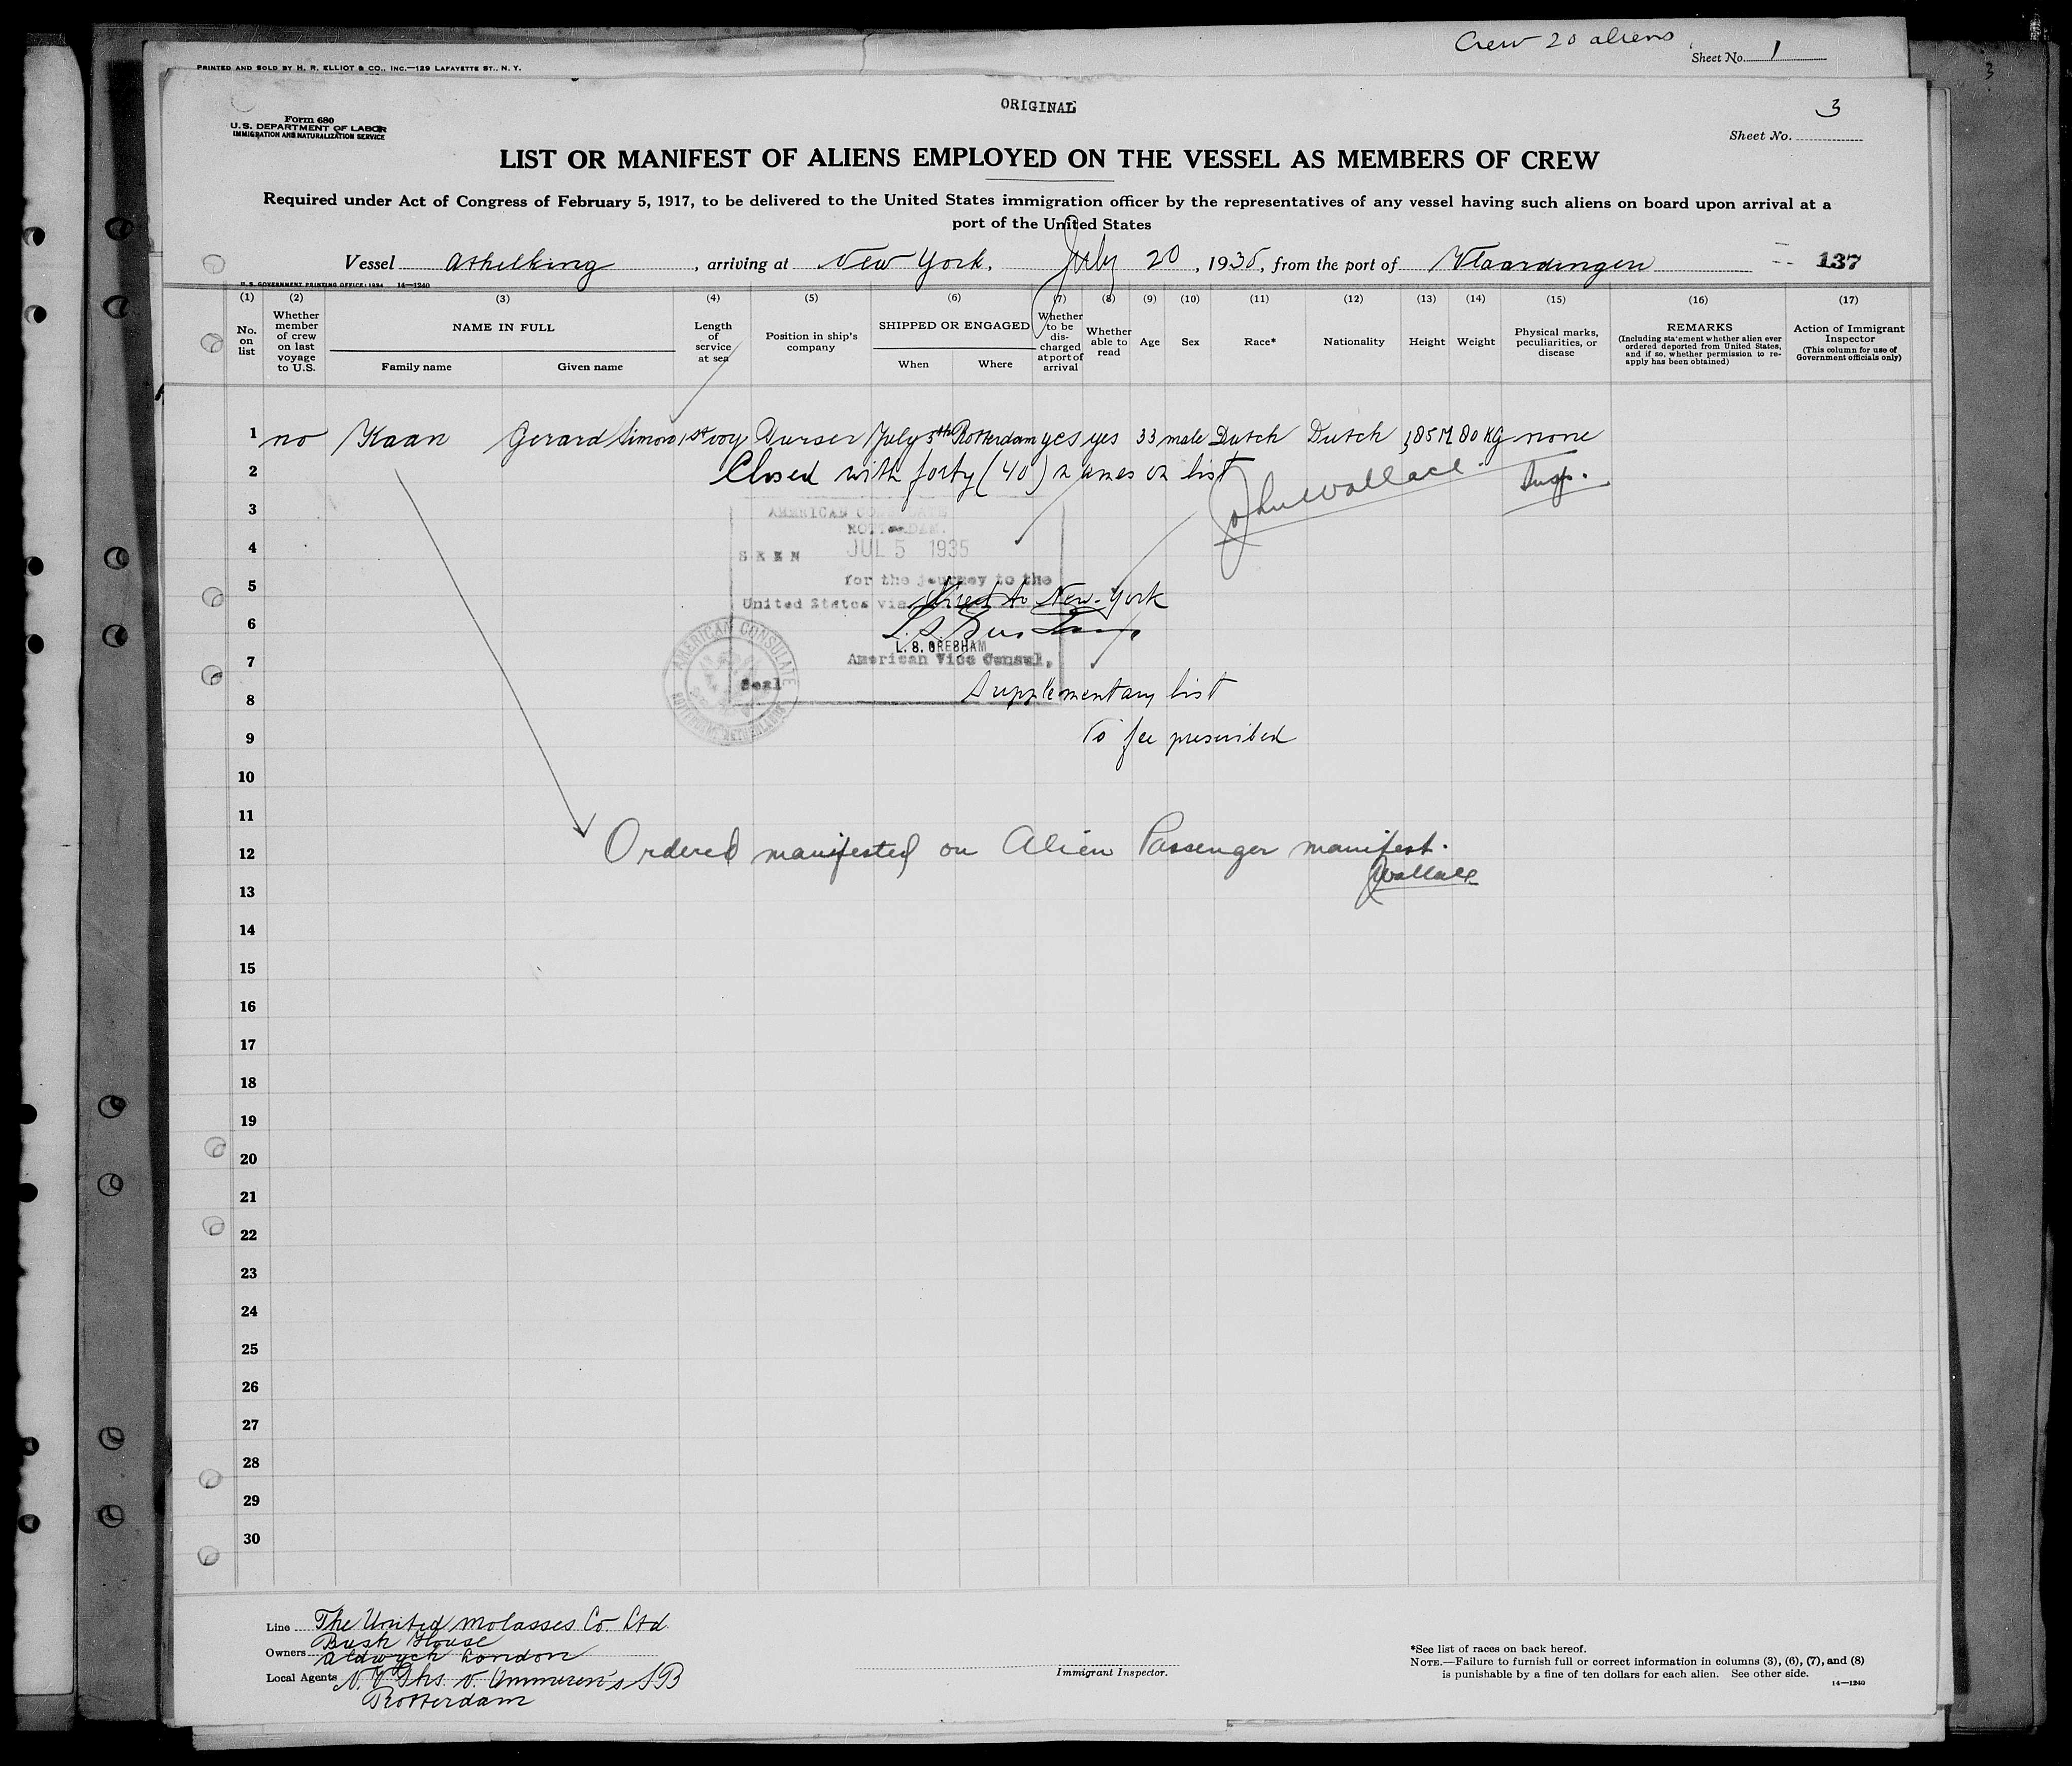 Crew 20 aliens
Sheet No. 1
3
PRINTED AND SOLD BY H. R. ELLIOT & CO., INC.—129 LAFAYETTE ST., N. Y.
ORIGINAL
3
Form 680
U. S. DEPARTMENT OF LABOR
IMMIGRATION AND NATURALIZATION SERVICE
Sheet No.
LIST OR MANIFEST OF ALIENS EMPLOYED ON THE VESSEL AS MEMBERS OF CREW
Required under Act of Congress of February 5, 1917, to be delivered to the United States immigration officer by the representatives of any vessel having such aliens on board upon arrival at a
port of the United States
Vessel Athelking, arriving at New York. July 20, 1935, from the port of Vlaardingen 137
U. S. GOVERNMENT PRINTING OFFICE: 1934 14—1240
(1) (2) (3) (4) (5) (6) (7) (8) (9) (10) (11) (12) (13) (14) (15) (16) (17)
No. on list
Whether member of crew on last voyage to U.S.
NAME IN FULL
Family name
Given name
Length of service at sea
Position in ship's company
SHIPPED OR ENGAGED
When
Where
Whether to be discharged at port of arrival
Whether able to read
Age
Sex
Race*
Nationality
Height
Weight
Physical marks, peculiarities, or disease
REMARKS
(Including statement whether alien ever ordered deported from United States, and if so, whether permission to reapply has been obtained)
Action of Immigrant Inspector
(This column for use of Government officials only)
1 no Kaan Gerard Simon 1st voy Purser July 5th Rotterdam yes yes 33 male Dutch Dutch 1,85 M 80 KG none
2 Closed with forty (40) names on list
John Wallace Insp.
3
AMERICAN CONSULATE
ROTTERDAM.
4
SEEN JUL 5 1935
for the journey to the
5
United States via direct to New-York
6
L. S. GREBHAM
7
American Vice Consul,
AMERICAN CONSULATE
Seal
8 Supplementary list
9 No fee prescribed
10
11
12 Ordered manifested on Alien Passenger manifest.
JWallace
13
14
15
16
17
18
19
20
21
22
23
24
25
26
27
28
29
30
Line The United Molasses Co. Ltd
Bush House
Owners Aldwych London
Local Agents N.V. Phs. v. Ommeren's SB
Rotterdam
Immigrant Inspector.
*See list of races on back hereof.
NOTE.—Failure to furnish full or correct information in columns (3), (6), (7), and (8)
is punishable by a fine of ten dollars for each alien. See other side.
14—1240